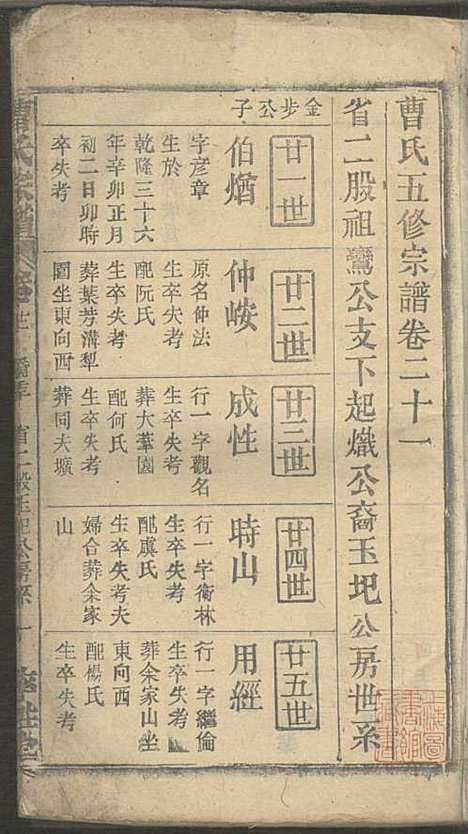 曹氏五修宗譜卷二十一
省二股祖鸞公支下起熾公裔玉圯公房世系
金步公子
廿一世
伯熖
字彦章
生於
乾隆三十六
年辛卯正月
初二日卯時
卒失考
廿二世
仲峖
原名仲法
生卒失考
配阮氏
生卒失考
葬葉芳溝犁
圍坐東向西
廿三世
成性
行一字觀名
生卒失考
葬大葦園
配何氏
生卒失考
葬同夫壙
廿四世
時山
行一字衡林
生卒失考
配虞氏
生卒失考夫
婦合葬余家
山
廿五世
用經
行一字繼倫
生卒失考
葬余家山坐
東向西
配楊氏
生卒失考